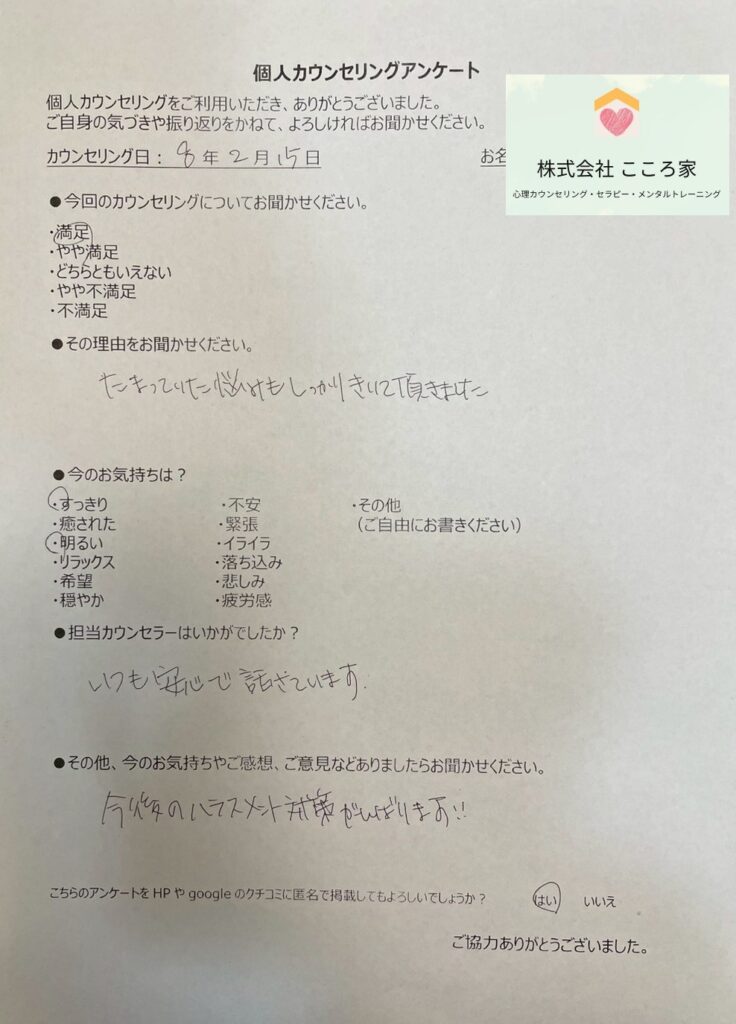 個人カウンセリングアンケート
個人カウンセリングをご利用いただき、ありがとうございました。
ご自身の気づきや振り返りをかねて、よろしければお聞かせください。
カウンセリング日： 8 年 2 月 15 日
お名
株式会社 こころ家
心理カウンセリング・セラピー・メンタルトレーニング
●今回のカウンセリングについてお聞かせください。
・満足
・やや満足
・どちらともいえない
・やや不満足
・不満足
●その理由をお聞かせください。
たまっていた悩みもしっかりきいて頂きました
●今のお気持ちは？
・すっきり ・不安 ・その他
・癒された ・緊張 （ご自由にお書きください）
・明るい ・イライラ
・リラックス ・落ち込み
・希望 ・悲しみ
・穏やか ・疲労感
●担当カウンセラーはいかがでしたか？
いつも安心で話せています.
●その他、今のお気持ちやご感想、ご意見などありましたらお聞かせください。
今後のハラスメント対策がんばります!!
こちらのアンケートを HP や google のクチコミに匿名で掲載してもよろしいでしょうか？ はい いいえ
ご協力ありがとうございました。